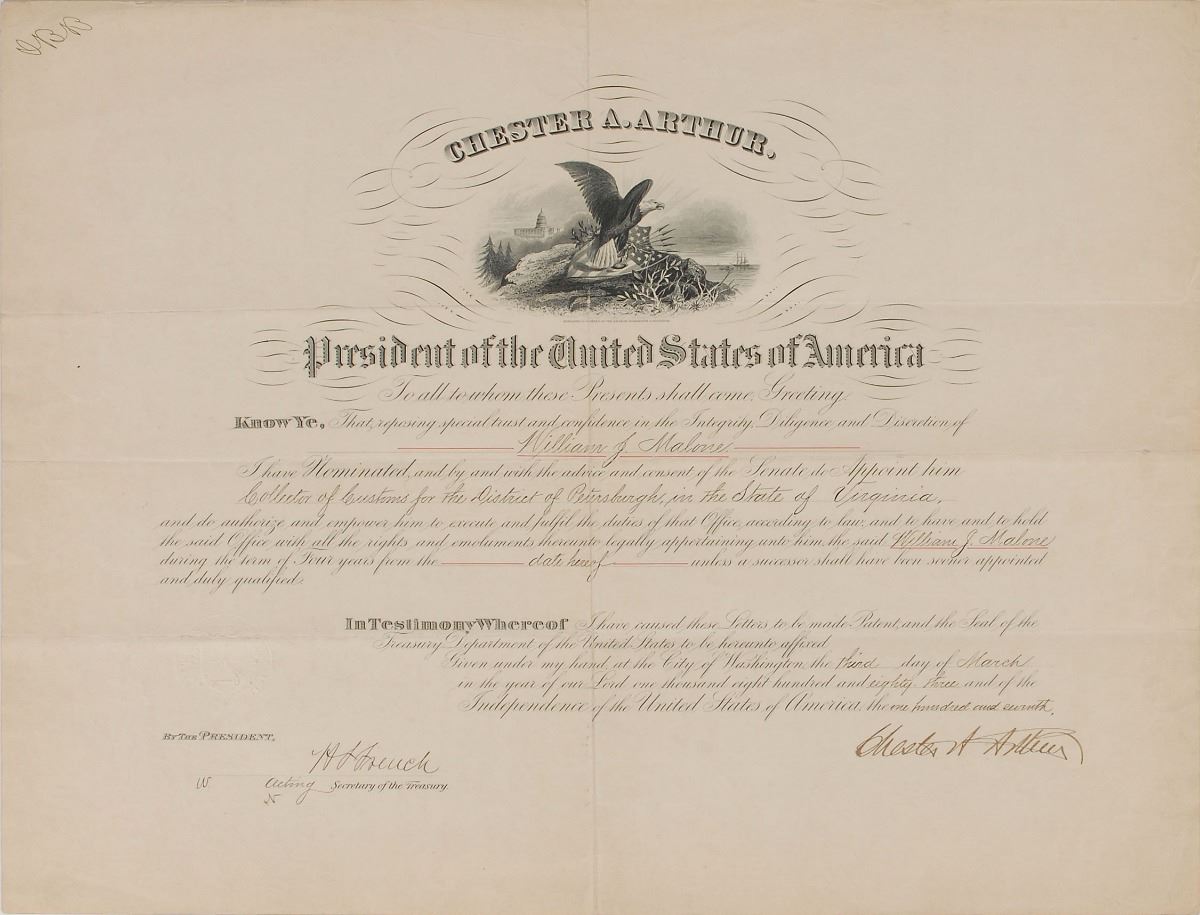 CHESTER A. ARTHUR.
President of the United States of America
To all to whom these Presents shall come, Greeting.
Know Ye, That, reposing special trust and confidence in the Integrity, Diligence and Discretion of
William J. Malone
I have Nominated, and by and with the advice and consent of the Senate, do Appoint him
Collector of Customs for the District of Petersburgh, in the State of Virginia,
and do authorize and empower him to execute and fulfil the duties of that Office, according to law, and to have and to hold
the said Office, with all the rights and emoluments thereunto legally appertaining unto him, the said William J. Malone
during the term of Four years from the date hereof unless a successor shall have been sooner appointed
and duly qualified.
In Testimony Whereof I have caused these Letters to be made Patent, and the Seal of the
Treasury Department of the United States to be hereunto affixed.
Given under my hand, at the City of Washington, the third day of March
in the year of our Lord one thousand eight hundred and eighty three and of the
Independence of the United States of America, the one hundred and seventh.
Chester A Arthur
BY THE PRESIDENT,
H F French
Acting Secretary of the Treasury.